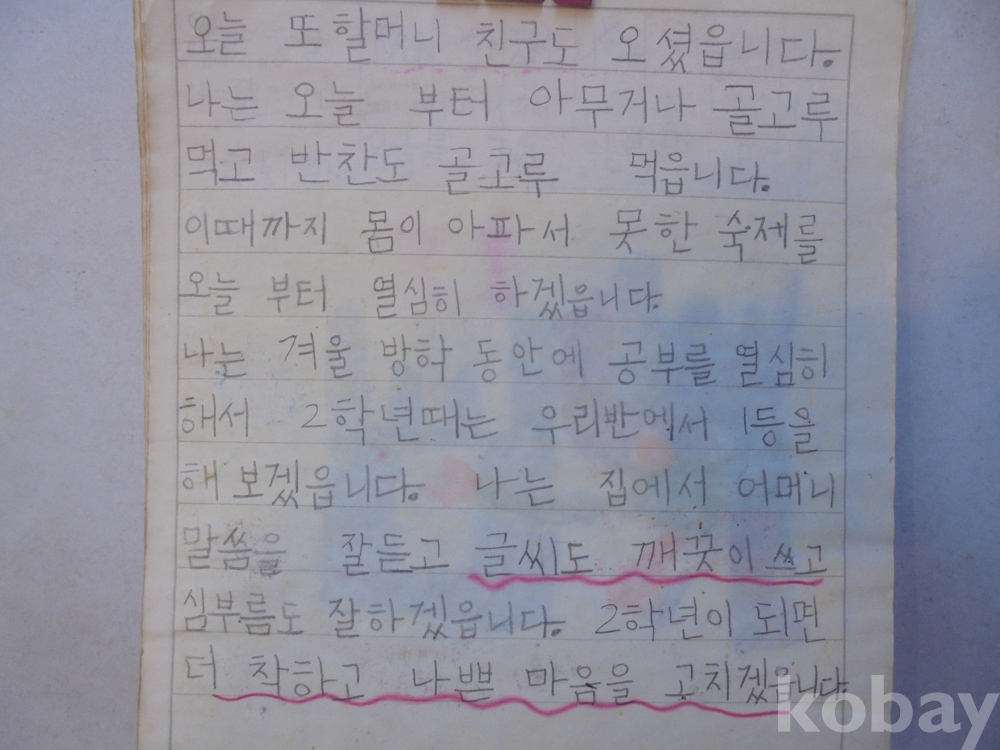 오늘 또할머니 친구도 오셨읍니다.
나는 오늘 부터 아무거나 골고루
먹고 반찬도 골고루 먹읍니다.
이때까지 몸이 아파서 못한 숙제를
오늘 부터 열심히 하겠읍니다.
나는 겨울 방학 동안에 공부를 열심히
해서 2학년때는 우리반에서 1등을
해 보겠읍니다. 나는 집에서 어머니
말씀을 잘듣고 글씨도 깨끗이 쓰고
심부름도 잘하겠읍니다. 2학년이 되면
더 착하고 나쁜 마음을 고치겠읍니다
kobay